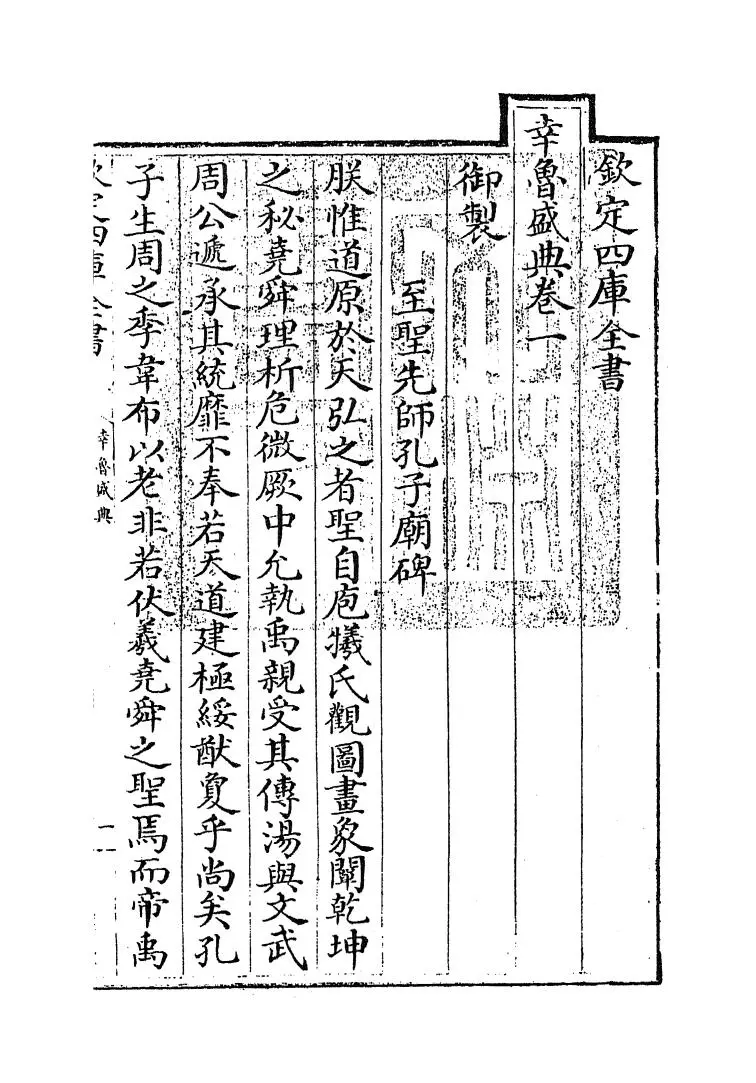 欽定四庫全書
幸魯盛典卷一
御製
至聖先師孔子廟碑
朕惟道原於天弘之者聖自庖犧氏觀圖畫象闡乾坤
之秘堯舜理析危微厥中允執禹親受其傳湯與文武
周公遞承其統靡不奉若天道建極綏猷敻乎尚矣孔
子生周之季韋布以老非若伏羲堯舜之聖焉而帝禹
欽定四庫全書
幸魯盛典
一